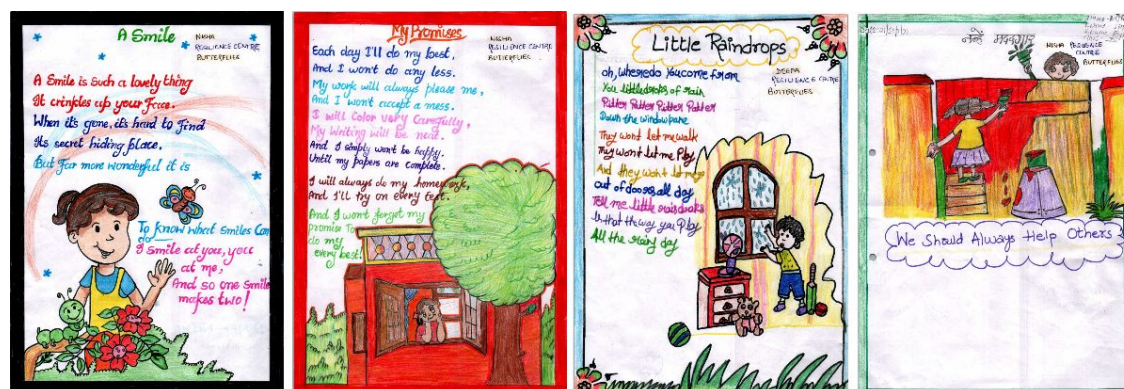 A Smile
NISHA
RESILIENCE CENTRE
BUTTERFLIES
A Smile is Such a lovely thing
It crinkles up your Face.
When it's gone, it's hard to Find
Its secret hiding place.
But Far more wonderful it is
To know what smiles Can
do
I smile at you, you
at me,
And so one Smile
makes two!
My Promises
NISHA
RESILIENCE CENTRE
BUTTERFLIES
Each day I'll do my best,
And I won't do any less.
My work will always please me,
And I won't accept a mess.
I will Color very Carefully,
My Writing will be neat.
And I simply won't be happy.
Until my papers are complete.
I will always do my homework,
And I'll try on every test.
And I won't forget my
promise To
do my
every best!
Little Raindrops
DEEPA
RESILIENCE CENTRE
BUTTERFLIES
oh, where do you come from
You little drops of rain
Pitter Patter Pitter Patter
Down the window pane
They wont let me walk
They won't let me Play
And they won't let me
out of doors all day
Tell me little raindrops
Is that the way you Play
All the rainy day
नन्हें मददगार
NISHA RESILIENCE
CENTRE
BUTTERFLIES
We Should Always Help Others